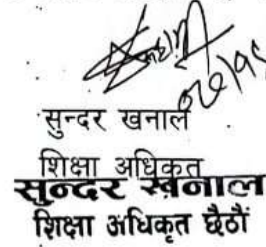 सुन्दर खनाल
शिक्षा अधिकृत
सुन्दर खनाल
शिक्षा अधिकृत छैठौं